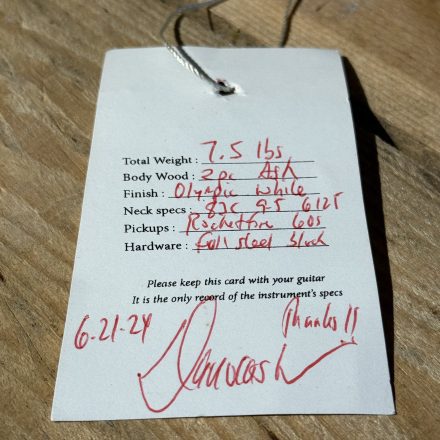 Total Weight : 7.5 lbs
Body Wood : 2pc Ash
Finish : Olympic White
Neck specs : 82C 9.5 6125
Pickups : Rocketfire 60s
Hardware : full steel block
Please keep this card with your guitar
It is the only record of the instrument's specs
6-21-24
Thanks!!